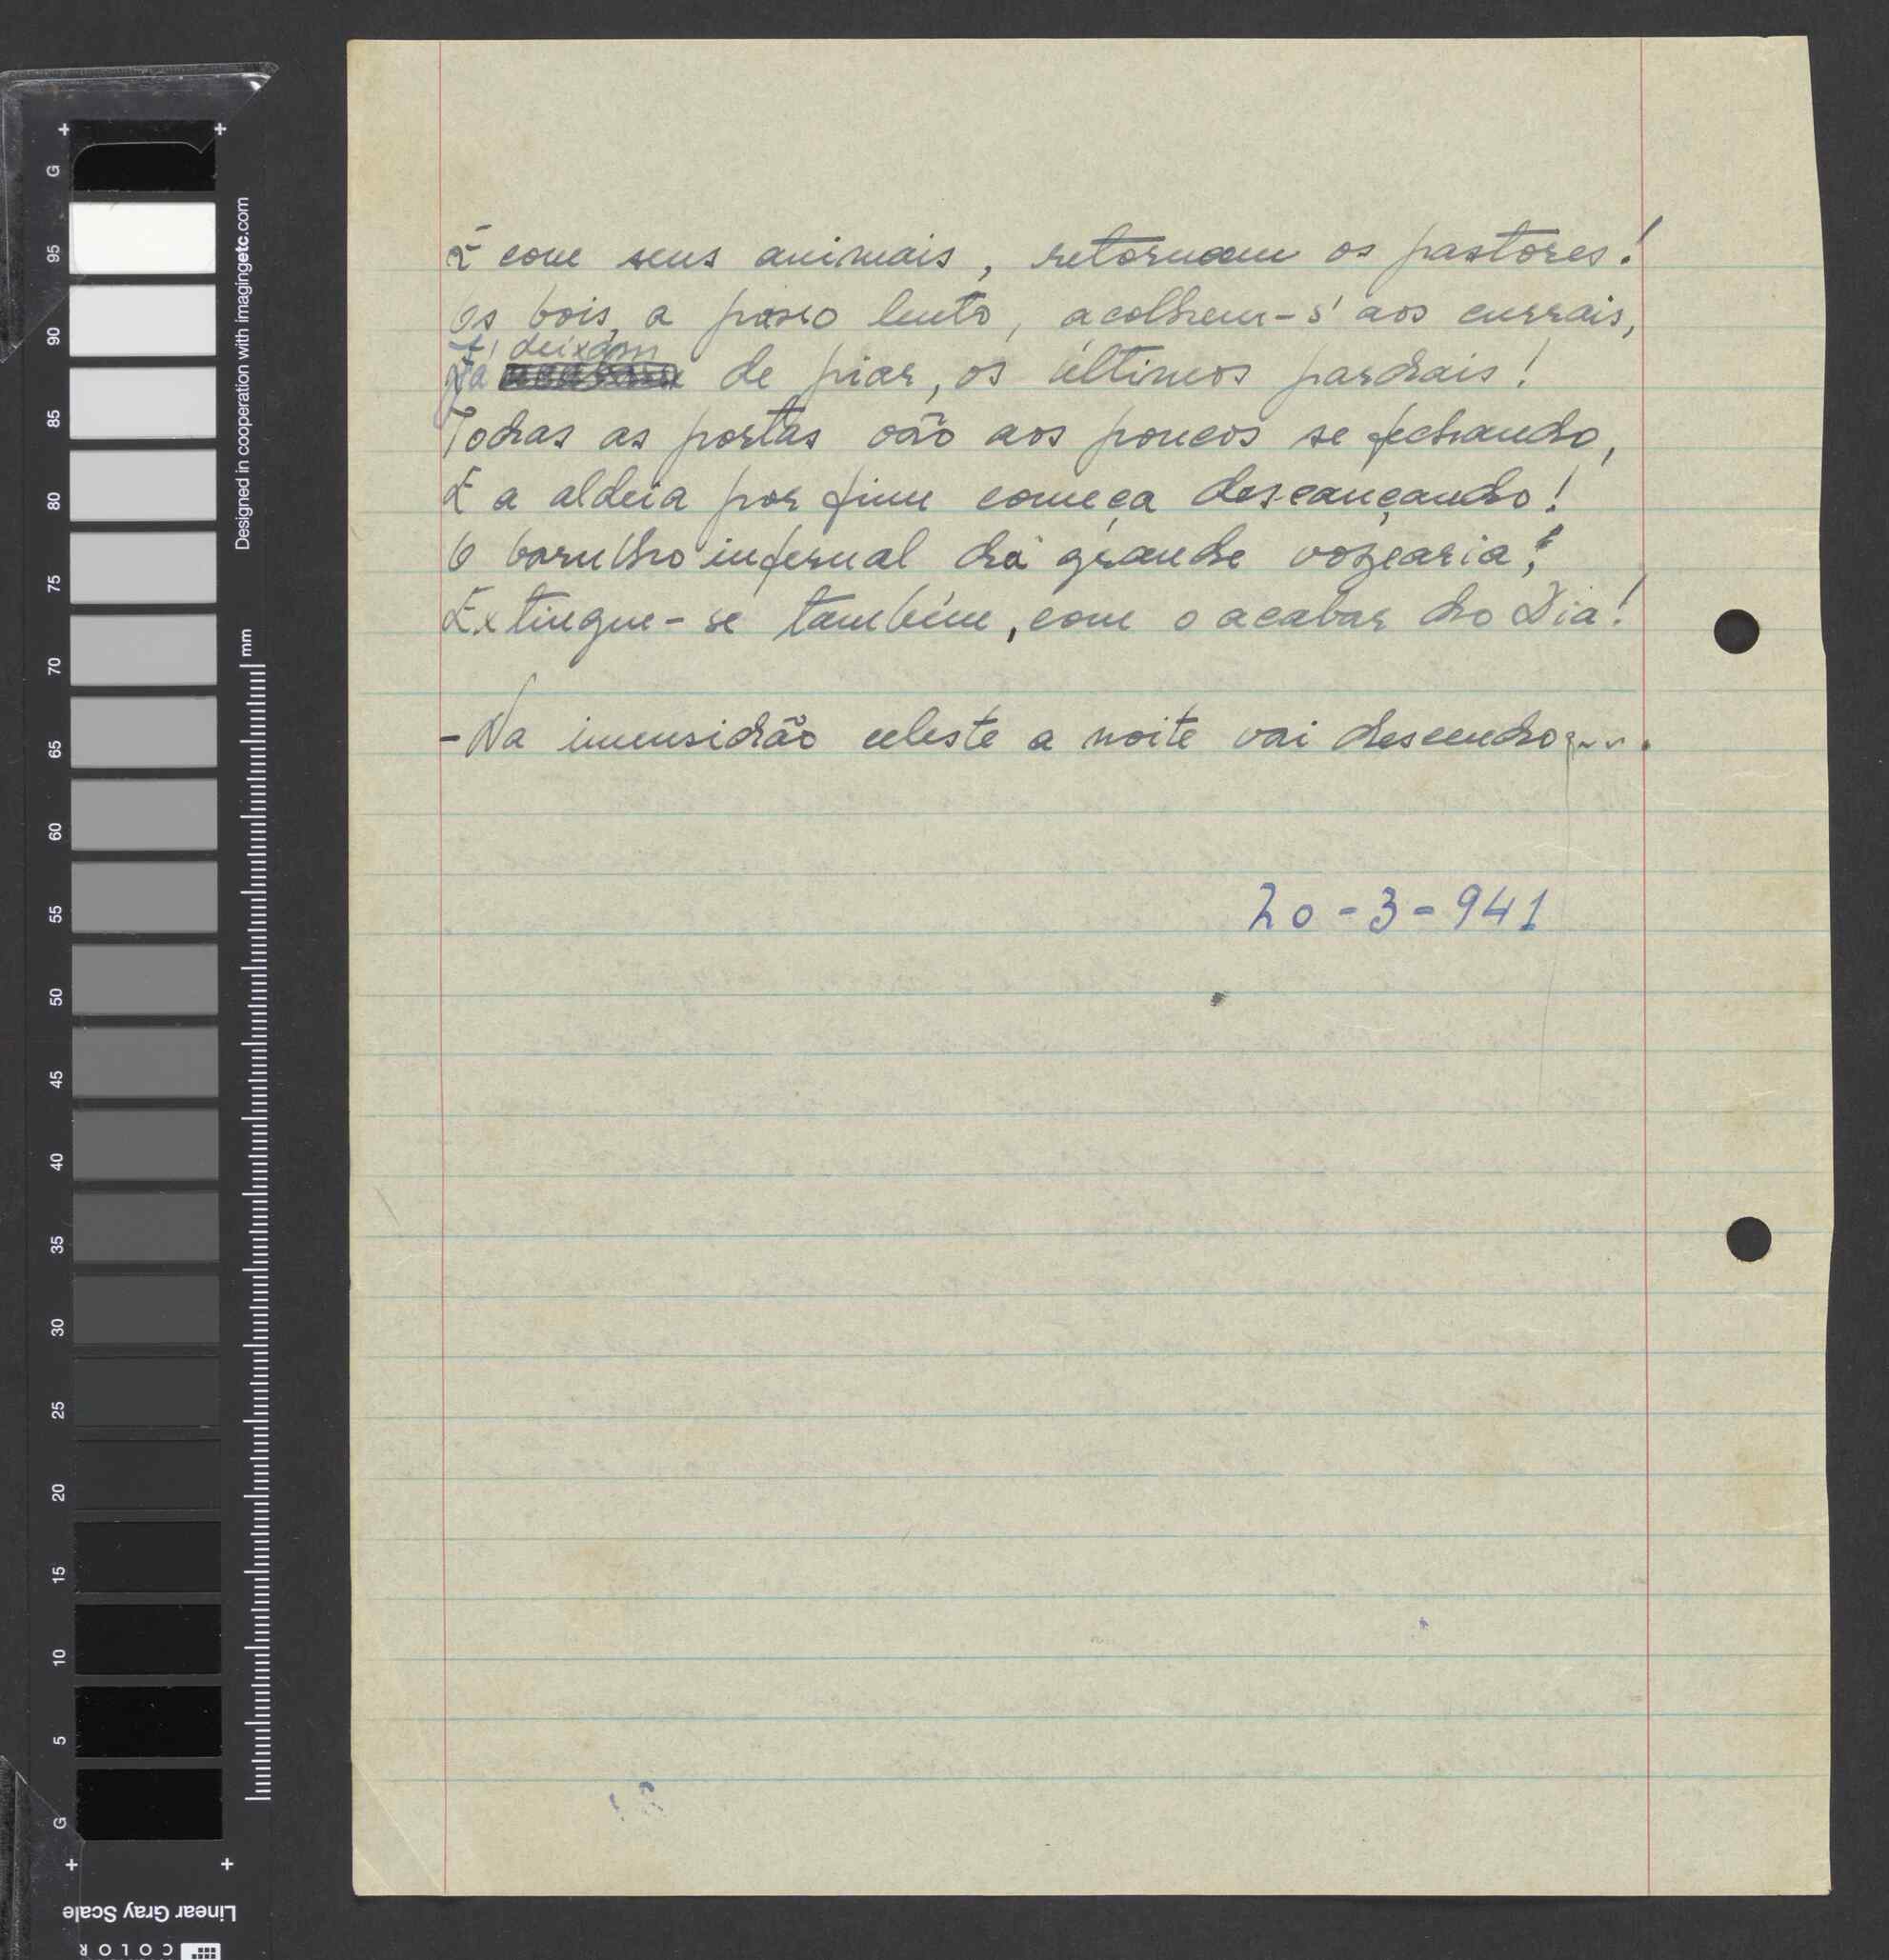 E com seus animais, retornam os pastores!
Os bois, a passo lento, acolhem-s' aos currais,
deixam
Já de piar, os últimos pardais!
Todas as portas vão aos poucos se fechando,
E a aldeia por fim começa descançando!
O barulho infernal da grande vozearia,
Extingue-se também, com o acabar do Dia!
-Na imensidão celeste a noite vai descendo....
20-3-941
Designed in cooperation with imagingetc.com
mm
G
95
90
85
80
75
70
65
60
55
50
45
40
35
30
25
20
15
10
5
G
Linear Gray Scale
COLOR